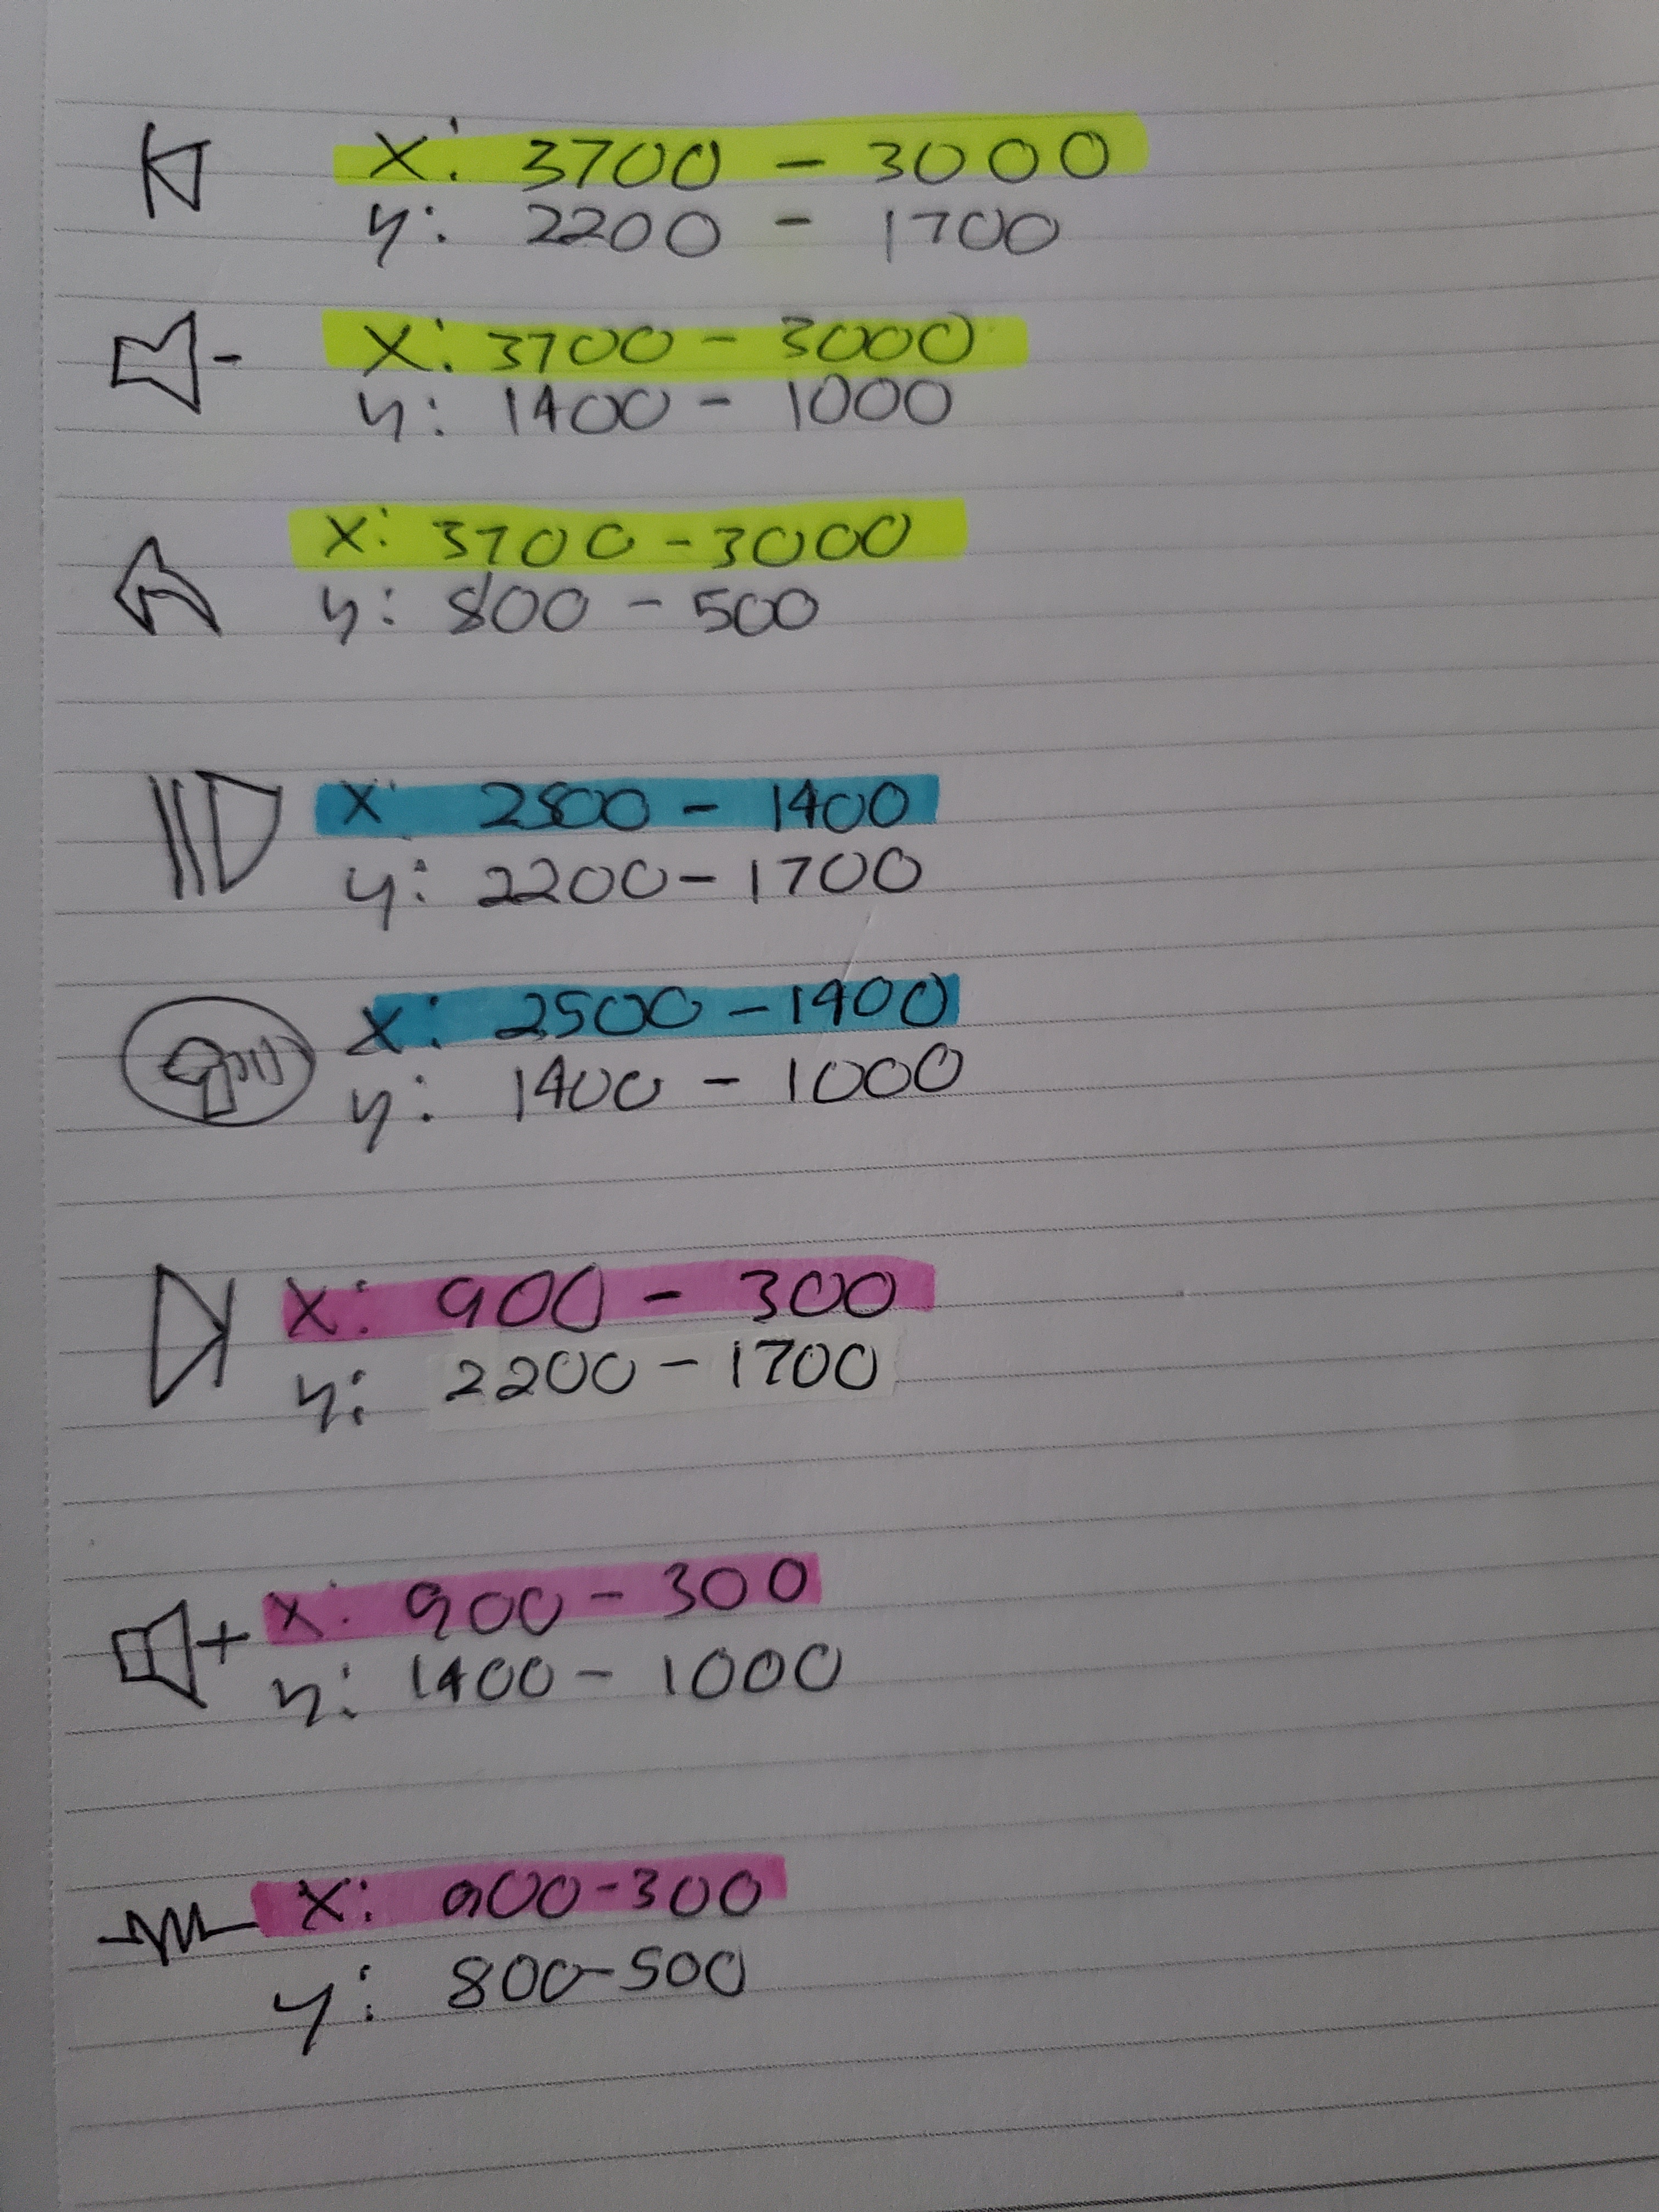 X: 3700 - 3000
y: 2200 - 1700
- X: 3700 - 3000
y: 1400 - 1000
X: 3700 - 3000
y: 800 - 500
X: 2500 - 1400
y: 2200 - 1700
X: 2500 - 1400
y: 1400 - 1000
X: 900 - 300
y: 2200 - 1700
+ X: 900 - 300
y: 1400 - 1000
X: 900 - 300
y: 800 - 500